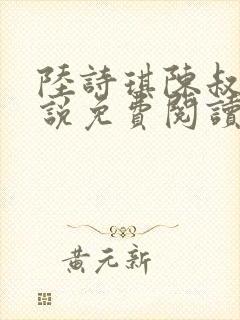 陸詩琪陳叔
說免費閱讀
黃元新